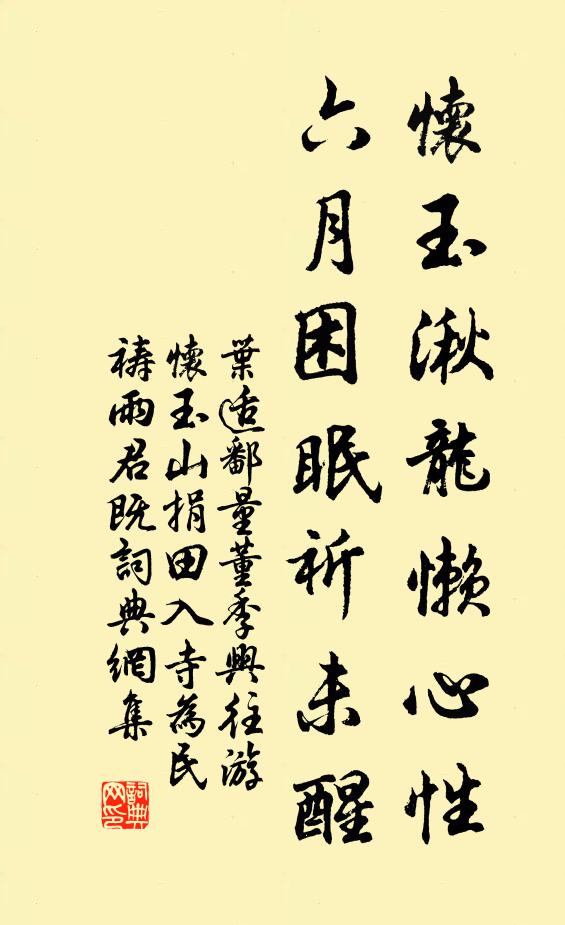 懷玉湫龍懶心性
六月困眠祈未醒
葉适鄱量董季興往游
懷玉山捐田入寺為民
禱雨君既詞典網集
詞典网印